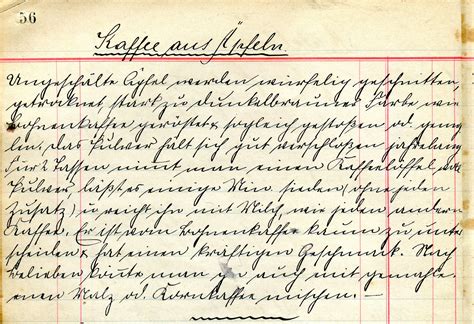 56
Kaffee aus Äpfeln.
Ungeschälte Äpfel werden würfelig geschnitten,
getrocknet, stark zu dunkelbrauner Farbe wie
Bohnenkaffee geröstet & sogleich gestoßen od. gemah-
len. Das Pulver hält sich gut verschloßen jahrelang
Für 2 Tassen nimt man einen Kaffeelöffel voll
Pulver läßt es einige Min sieden (ohne jeden
Zusatz) u reicht ihn mit Milch, wie jeden andern
Kaffee. Er ist vom Bohnenkaffee kaum zu unter-
scheiden & hat einen kräftigen Geschmack. Nach
Belieben könte man ihn auch mit gemahle-
nen Malz od. Kornkaffee mischen. —